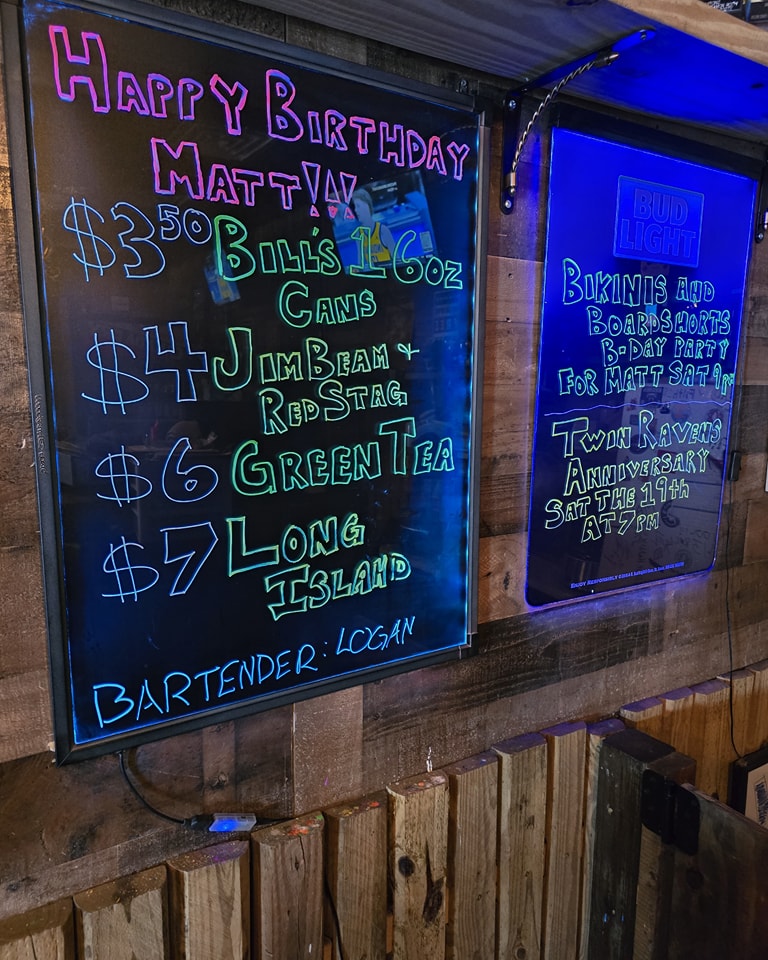 HAPPY BIRTHDAY
MATT!!!
$3.50 BILL'S 16OZ
CANS
$4 JIM BEAM +
RED STAG
$6 GREEN TEA
$7 LONG
ISLAND
BARTENDER: LOGAN
BUD
LIGHT
BIKINIS AND
BOARDSHORTS
B-DAY PARTY
FOR MATT SAT 9PM
TWIN RAVENS
ANNIVERSARY
SAT THE 19th
AT 7PM
ENJOY RESPONSIBLY